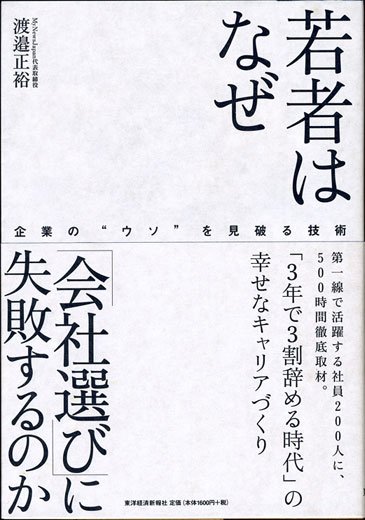 若者は
なぜ
「会社選び」に
失敗するのか
MyNewsJapan代表取締役
渡邉正裕
企業の“ウソ”を見破る技術
第一線で活躍する社員200人に、
500時間徹底取材。
「3年で3割辞める時代」の
幸せなキャリアづくり
東洋経済新報社 定価（本体1600円＋税）